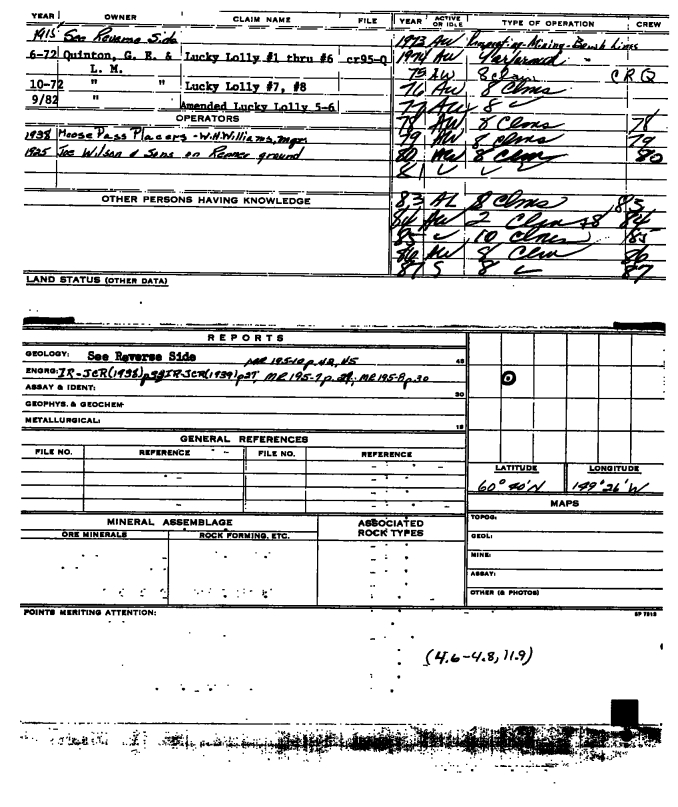 YEAR OWNER CLAIM NAME FILE YEAR ACTIVE OR IDLE TYPE OF OPERATION CREW
1915 See Reverse Side 1973 AW
6-72 Quinton, G. E. & Lucky Lolly #1 thru #6 cr95-Q 1974 AW
L. M. 75 AW 8 claim CRQ
10-72 " " Lucky Lolly #7, #8 76 AW 8 Clms
9/82 " Amended Lucky Lolly 5-6 77 AW 8 ✓
OPERATORS 78 AW 8 Clms 78
1938 Moose Pass Placers - W.H. Williams, mgr 79 AW 8 Clms 79
1925 Joe Wilson & Sons on Renner ground 80 AW 8 Clms 80
81 ✓ ✓ ✓
OTHER PERSONS HAVING KNOWLEDGE 83 AL 8 Clms 83
84 AW 2 Clms 84
85 ✓ 10 Clms 85
86 AW 8 Clm 86
87 S 8 ✓ 87
LAND STATUS (OTHER DATA)
REPORTS
GEOLOGY: See Reverse Side MR 195-10 p. 42, 45 45
ENGRG: IR-JCR(1938) p IR-JCR(1939) p27, MR 195-7 p. 29; MR 195-8 p. 30
ASSAY & IDENT: 30
GEOPHYS. & GEOCHEM:
METALLURGICAL: 15
GENERAL REFERENCES
FILE NO. REFERENCE FILE NO. REFERENCE
LATITUDE LONGITUDE
60° 40'N 149° 26'W
MAPS
MINERAL ASSEMBLAGE ASSOCIATED ROCK TYPES TOPOG:
ORE MINERALS ROCK FORMING, ETC. GEOL:
MINE:
ASSAY:
OTHER (& PHOTOS)
POINTS MERITING ATTENTION:
(4.6-4.8, 11.9)